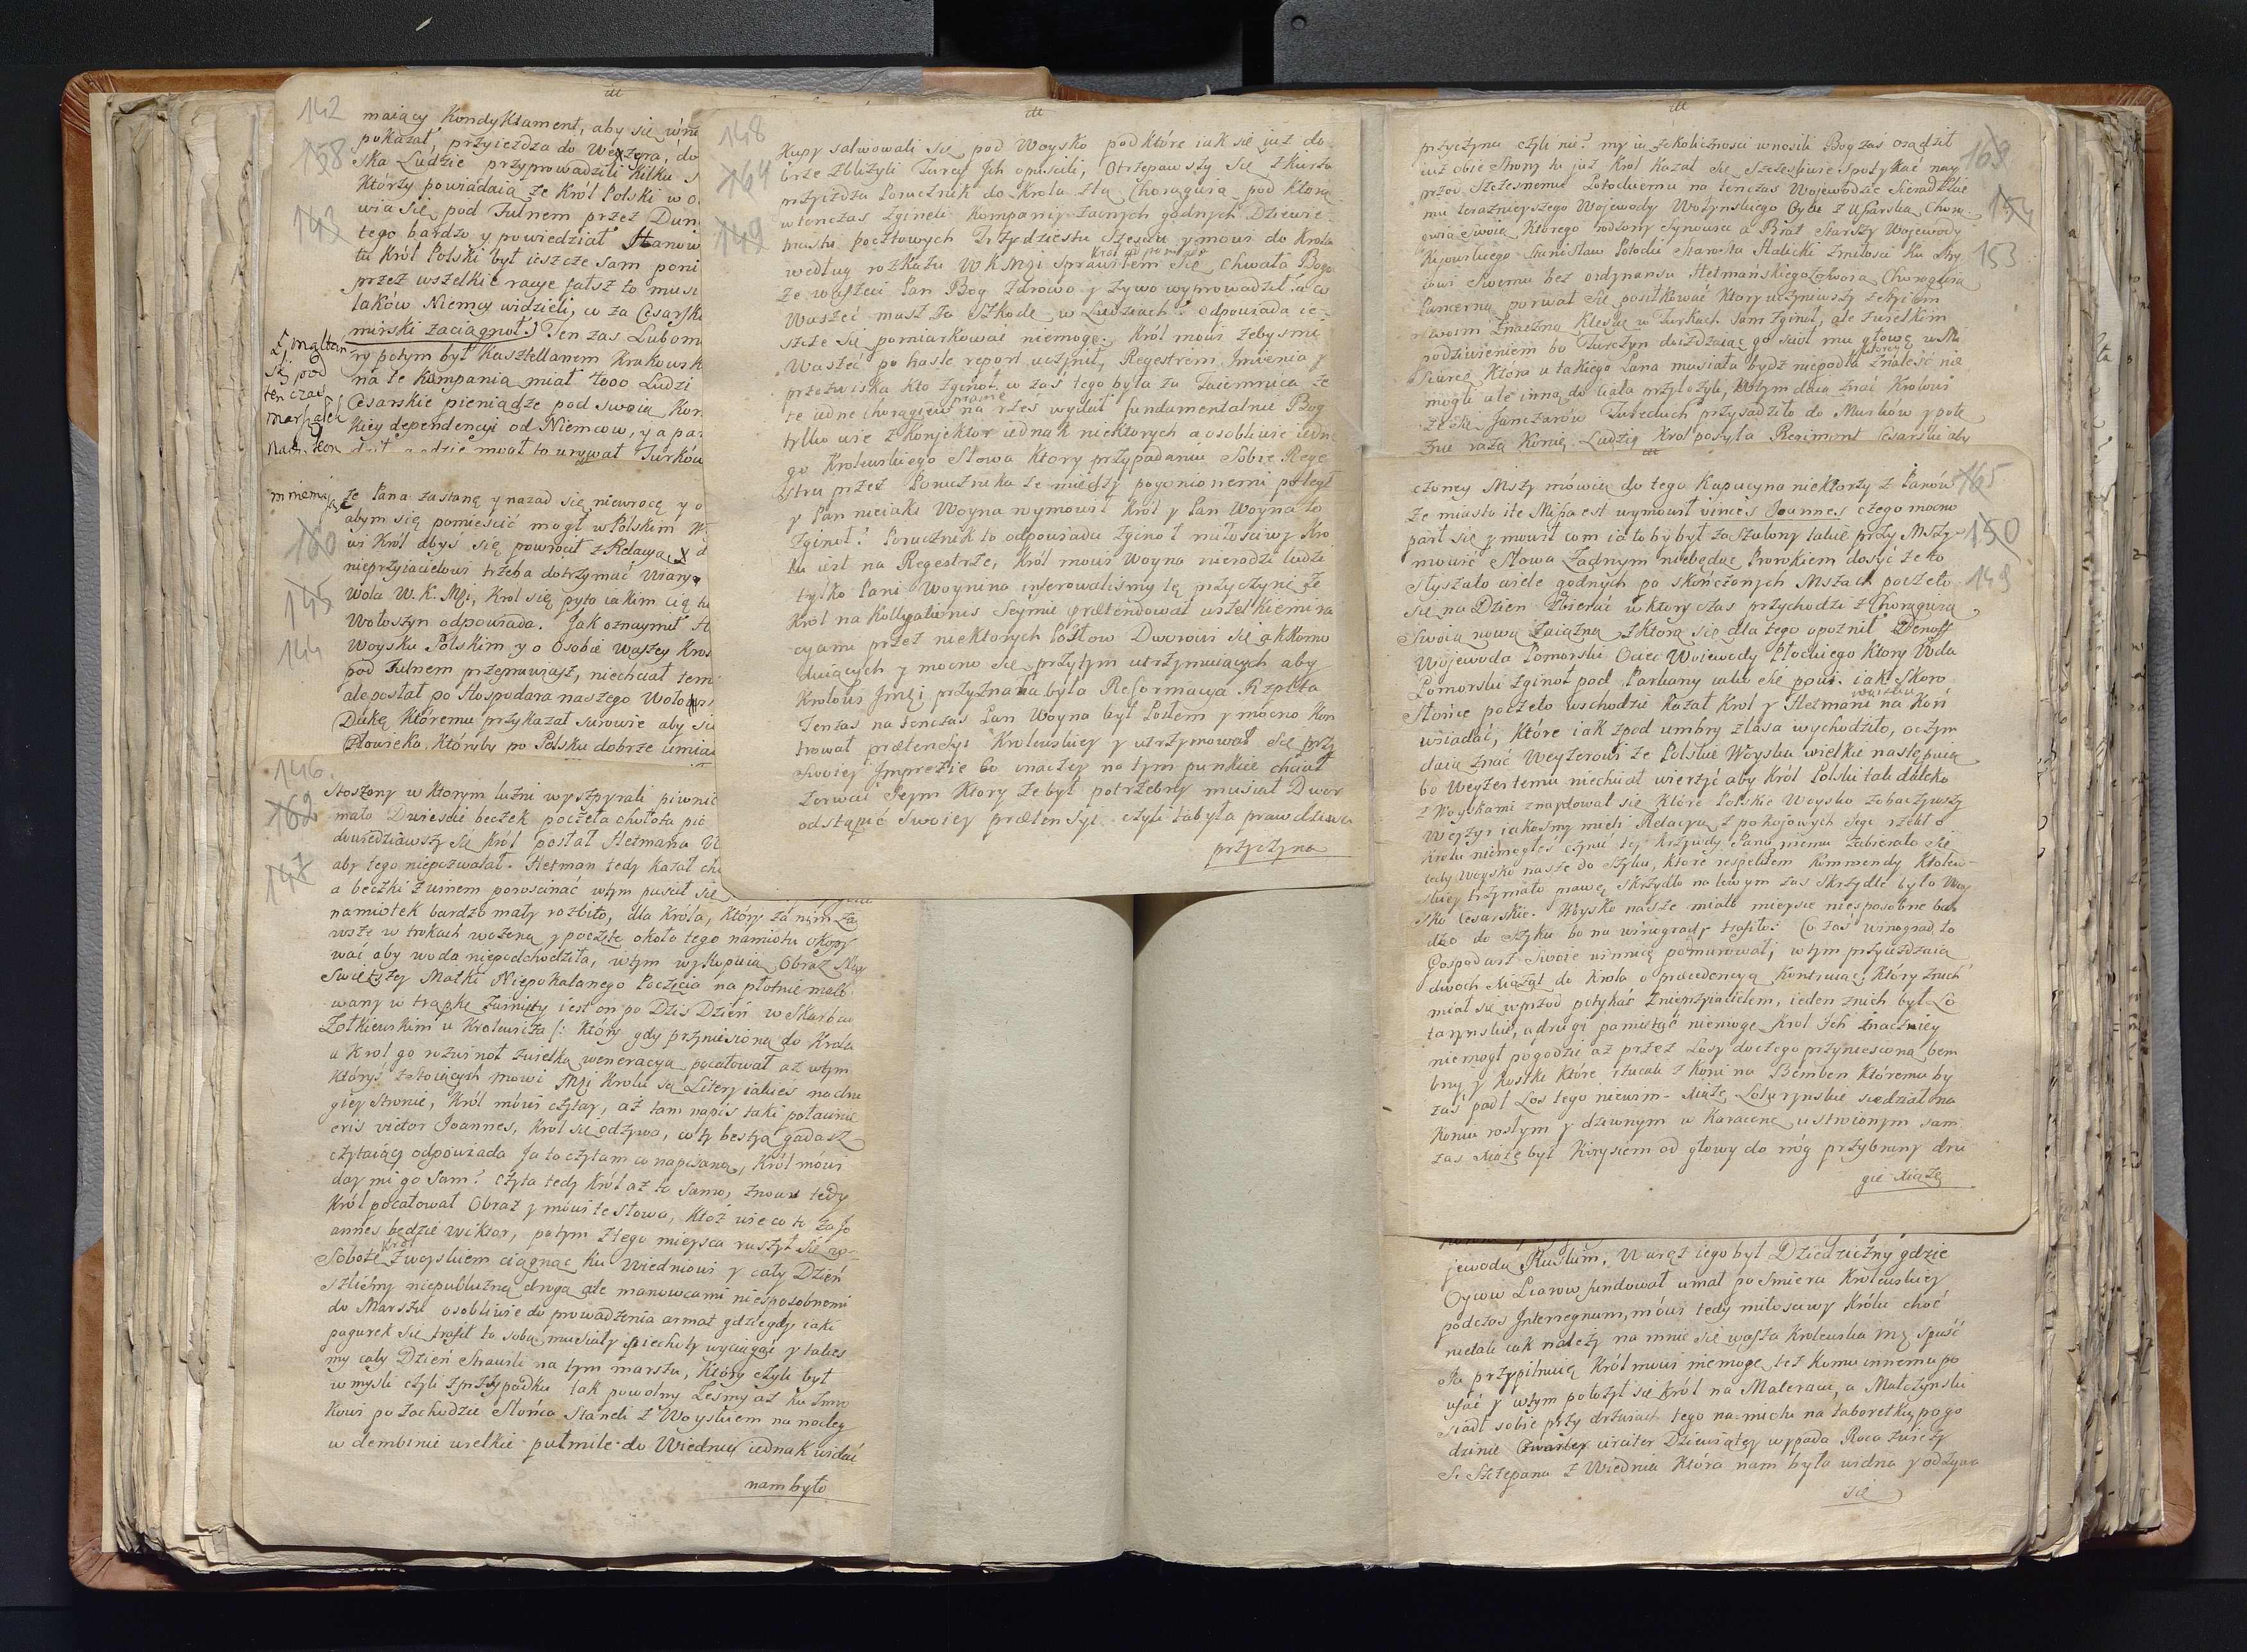 142
158
143
maiący Kondyktament, aby się
pokazał, przyiezdza do Wezyra, do
ska Ludzie przyprowadzili kilku
Którzy powiadaią że Król Polski w
wia się pod Tulnem przez Dun
tego bardzo y powiedział
tu Król Polski był ieszcze sam poni
przez wszelkie racye fałsz to musi
laków Niemcy widzieli, co za Cesarsk
mirski zaciągnoł.) Ten zas Lubom
ry potym był Kasztellanem Krakowsk
na te Kampanią miał 4000 Ludzi
Cesarskie pieniądze pod swoią Kom
kiey dependencyi od Niemcow, y a pa
gdzie mogł to urywał Turków
pod
ten czas
Marszałek
160
145
144
że Pana zastanę y nazad się niewrocę y o
abym się pomieścić mogł w Polskim W
wi Król abyś się powrocił z Relacyą
nieprzyiacielowi trzeba dotrzymać Wiary
Wola W. K. Mci, Krol się pyta iakim cię
Wołoszyn odpowiada. Jak oznaymił
Woysku Polskim y o Osobie Waszey Kro
pod Tulnem przeprawiasz, niechciał tem
ale posłał po Hospodara naszego Woło
Dukę, Któremu przykazał surowie aby
Człowieka, Któryby po Polsku dobrze umia
146
162
147
w ktorym luźni wyszpyrali piwnic
mało Dwiescie beczek poczęła chołota pić
dowiedziawszy się Król posłał Hetmana
aby tego niepozwalał. Hetman tedy kazał
a beczki z winem porościnać wtym puscił się
namiotek bardzo mały rozbito, dla Króla, Który za nim za
wsze w trokach wożono y poczęto około tego namiotu okopy
wać aby woda niepodchodziła, wtym wykopuią Obraz Nay
Swiętszey Matki Niepokalanego Poczęcia na płotnie malo
wany w trąbkę zwinięty iest on po Dzis Dzień w Skarbcu
Zołkiewskim u Krolewica /: Który gdy przyniesiono do Krola
a Krol go rozwinoł z wielką weneracyą pocałował aż wtym
Któryś z stoiących mowi Mci Krolu są Litery iakieś na dru
giey stronie, Król mówi czytay, aż tam napis taki po łacinie
eris victor Joannes, Krol się odzywa, co ty bestya gadasz
czytaiący odpowiada Ja to czytam co napisano, Król mówi
day mi go Sam? czyta tedy Król aż to samo, znowu tedy
Król pocałował Obraz y mówi te słowa, Któż wie co to za Jo
annes będzie Wiktor, potym z tego mieysca ruszył się w
Sobotę Król z woyskiem ciągnąc ku Wiedniowi y cały Dzień
szliśmy niepubliczną drogą ale manowcami niesposobnemi
do Marszu osobliwie do prowadzenia armat gdzie gdy iaki
pagurek się trafił to sobą musiały piechoty wyciągać y takeś
my cały Dzień strawili na tym marszu, Który czyli był
w mysli czyli z przypadku tak powolny żeśmy aż ku zmro
kowi po zachodzie Słońca staneli z Woyskiem na nocleg
w dembinie wielkie pułmile do Wiednia iednak widać
nam było
148
164
149
kupy salwowali się pod Woysko pod które iak się już do
brze zbliżyli Turcy Jch opuścili, Otrzepawszy się z kurzu
przyiezdza Porucznik do Krola z tą Chorągwią pod którą
wtenczas zgineli Kompanij zacnych godnych Dziewie
tnastu pocztowych Trzydziestu Szesciu y mowi do Krola
według rozkazu W K Mci sprawiłem się Król odpowiada Chwała Bogu
że waszeci Pan Bog zdrowo y żywo wyprowadził a co
Waszeć masz za szkodę w Ludziach? odpowiada ie
szcze się pomiarkować niemogę. Król mowi żebysmi
Waszeć po haśle report uczynił, Regestrem Jmienia y
przezwiska kto zginoł, co zas tego była za Taiemnica że
te iedne Chorągiew prawie na rzeź wydał fundamentalnie Bog
tylko wie z Konjektor iednak niektorych a osobliwie iedne
go Krolewskiego Słowa Ktory przypadaniu Sobie Rege
stru przez Porucznika że między pogonionemi poległ
y Pan nieiaki Woyna wymowił Król y Pan Woyna to
zginoł? Porucznik to odpowiada zginoł miłosciwy Kro
lu iest na Regestrze, Król mowi Woyna nierodzi ludzi
tylko Pani Woynina inferowalismy tę przyczynę że
Król na Kollegatimus Seymie prætendował wszelkiemi ra
cyami przez niektorych Posłow Dworowi się akkomo
duiących y mocno się przy tym utrzymuiących aby
Krolowi Jmci przyznana była Reformacya Rzpltą
Ten zas na tenczas Pan Woyna był Posłem y mocno kon
trował prætensyi Krolewskiey y utrzymował się przy
swoiey Jmprezie bo inaczey na tym punkcie chciał
zerwać Seym Ktory że był potrzebny musiał Dwor
odstąpić swoiey prætensyi. czyli ta była prawdziwa
przyczyna
169
154
153
przyczyna czyli nie? my iuż z okoliczności wnosili Bog zas osądził
iuż obie strony tu już Krol Kazał się szczęśliwie spotykać nay
przod Szczesnemu Potockiemu na tenczas Wojewodzie Sieradzkie
mu teraznieyszego Wojewody Wołynskiego Oycu z Usarską Chorą
gwią swoią Którego rodzony Synowiec a Brat starszy Wojewody
Kijowskiego Stanisław Potocki Starosta Halicki z miłosci ku Stry
iowi Swemu bez ordynansu Hetmańskiego z swoią Chorągwią
Pancerną porwał się posiłkować Ktory uczyniwszy z Stryiem
swoim znaczną klęskę w Turkach sam zginoł, ale z wielkim
podziwieniem bo Turczyn dociżdzaiąc go sciął mu głowę
Która u takiego Pana musiała bydz niepodła znaleść nie
mogli ale inną do ciała przyłożyli, Wtym daią znać Krolowi
że Janczarów Tureckich przysadziło do Murków y potę
znie rażą Konie, Ludzi Krol posyła Regiment Cesarski aby
165
150
149
czoney Mszy mówią do tego Kapucyna niektorzy z Panów
że miasto ite Missa est wymowił vinces Joannes czego mocno
parł się y mowił com ia to by był za szalony takie przy Mszy
mowić słowa Żadnym niebędąc Prorokiem dosyć że to
słyszało wiele godnych po skończonych Mszach poczęło
się na Dzien zbierać w który czas przychodzi z Chorągwią
swoią nową zaciężną z którą się dla tego opoznił Denoff
Wojewoda Pomorski Ociec Wojewody Płockiego Ktory Woda
Pomorski zginoł pod Parkany iako się powi. iak skoro
Słońce poczęło wschodzić Kazał Król y Hetmani woysku na Koń
wsiadać, Które iak z pod umbry z lasa wychodziło, o czym
daią znać Weyzerowi że Polskie Woyska wielkie następuią
bo Weyzer temu niechciał wierzyć aby Król Polski tak daleko
z Woyskami znaydował się Które Polskie Woysko zobaczywszy
Weyzyr iakosmy mieli Relacyą z pokojowych Jego rzekł o
Krolu niemogłeś czynić tey Krzywdy Panu memu Zabierało się
tedy Woysko nasze do szyku, które respektem Kommendy Krolew
skiey trzymało prawę skrzydło na lewym zas skrzydle było Woy
sko Cesarskie. Woysko nasze miało mieysce niesposobne bar
dzo do szyku bo na winogrady trafiło: Co zas winograd to
Gospodarz swoie winnicę pomurował, wtym przyieżdzaią
dwoch Xiążąt do Krola o precedencyą kontruiąc, Który z nich
miał się wprzod potykać z nieprzyiacielem, ieden z nich był Lo
taryński, a drugi pamiętać niemogę Krol Jch inaczey
niemogł pogodzić aż przez Losy do czego przyniesiono bem
bny y kostki które rzucali z koni na Bemben Któremu by
zaś padł Los tego niewim - Xiąże Lotaryński siedział na
Koniu rosłym y dziwnym w Karacenę ustroionym sam
zas Xiąże był Kirysiem od głowy do nóg przybrany dru
gie Xiąże
jewodą Ruskim, Waręż iego był Dziedziczny gdzie
Oycow Piarow fundował umarł po smierci Krolewskiey
podczas Interregnum, mówi tedy miłosciwy Królu choć
nietak iak należy na mnie się wasza Krolewska Mć spuść
oto przypilnuię Król mowi niemogę też komu innemu po
ufać y wtym położył się Król na Materacu, a Matczynski
siadł sobie przy drzwiach tego namiotu na taboretku, po go
dzinie circiter Dziewiątey wypada Raca z wieży
S. Szczepana z Wiednia Która nam była widna y odzywa
się